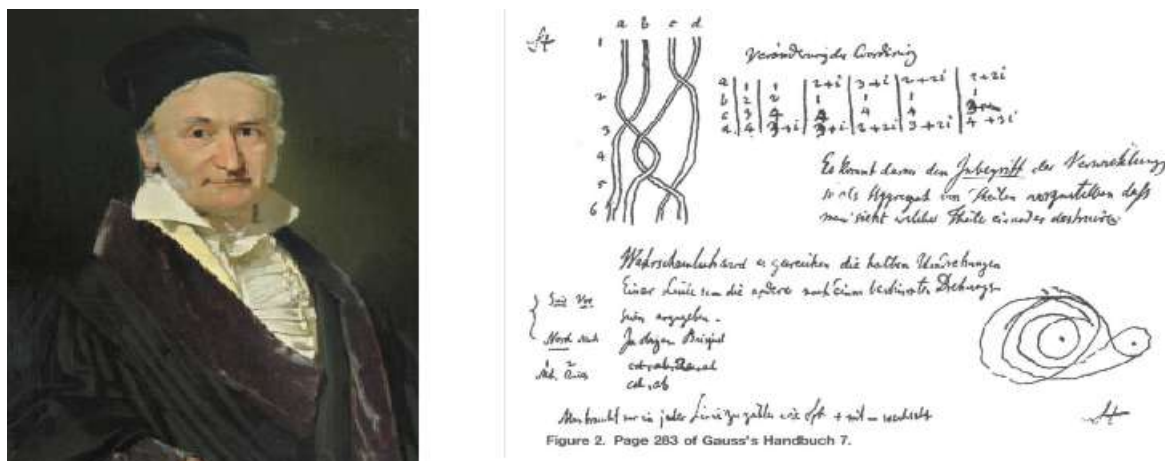 a b c d
1
Veränderung der
a 1 1 2+i 3+i 2+2i 2+2i
2
b 2 2 1 1 1 1
c 3 4 4 4 4
3
d 4 3+i 3+i 2+2i 3+2i 4+3i
4
5
6
Es kommt den Inbegriff der Verwicklung
als Aggregat von Theilen vorzustellen daß
man sieht welche Theile einander
Wahrscheinlich wird es die halben Umdrehungen
Einer Linie um die andere nach einem bestimmten Drehungs-
sinn anzugeben.
Beispiel
cd, ab
Man braucht nur in jeder Linie zu zählen wie oft + mit – wechselt
Figure 2. Page 283 of Gauss's Handbuch 7.